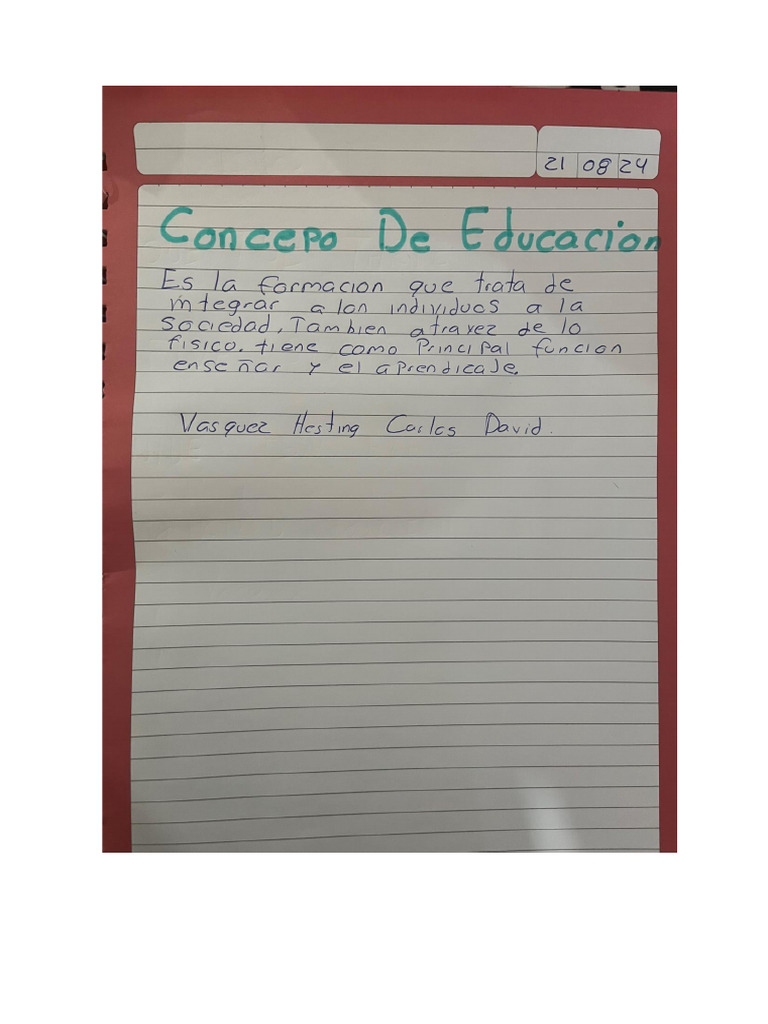 21 08 24
Concepo De Educacion
Es la formacion que trata de
integrar a lon individuos a la
sociedad. Tambien atravez de lo
fisico. tiene como Principal funcion
enseñar y el aprendicaje.
Vasquez Hesting Carlos David.